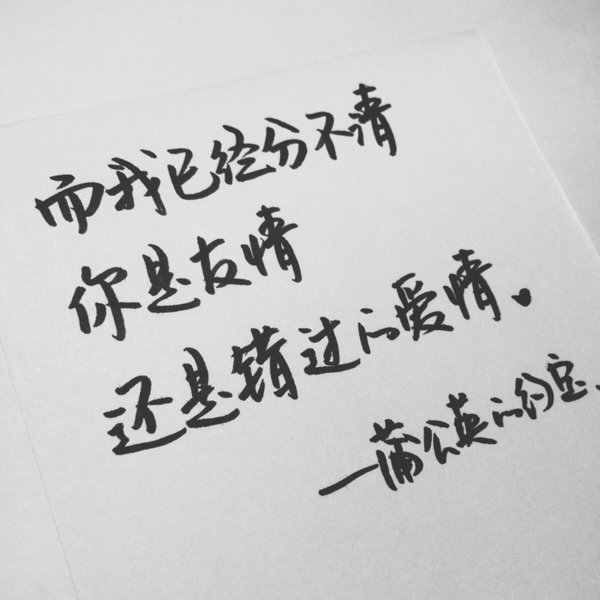 而我已经分不清
你是友情
还是错过的爱情。
—蒲公英的约定、